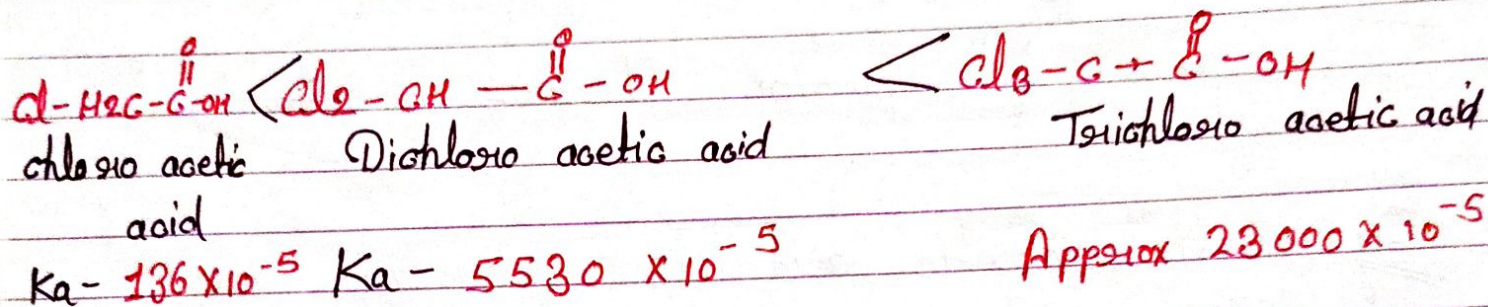 O O O
Cl-H2C-C-OH < Cl2-CH-C-OH < Cl3-C-C-OH
chloro acetic Dichloro acetic acid Trichloro acetic acid
acid
Ka- 136 X10-5 Ka- 5530 X10-5 Approx 23000 X 10-5